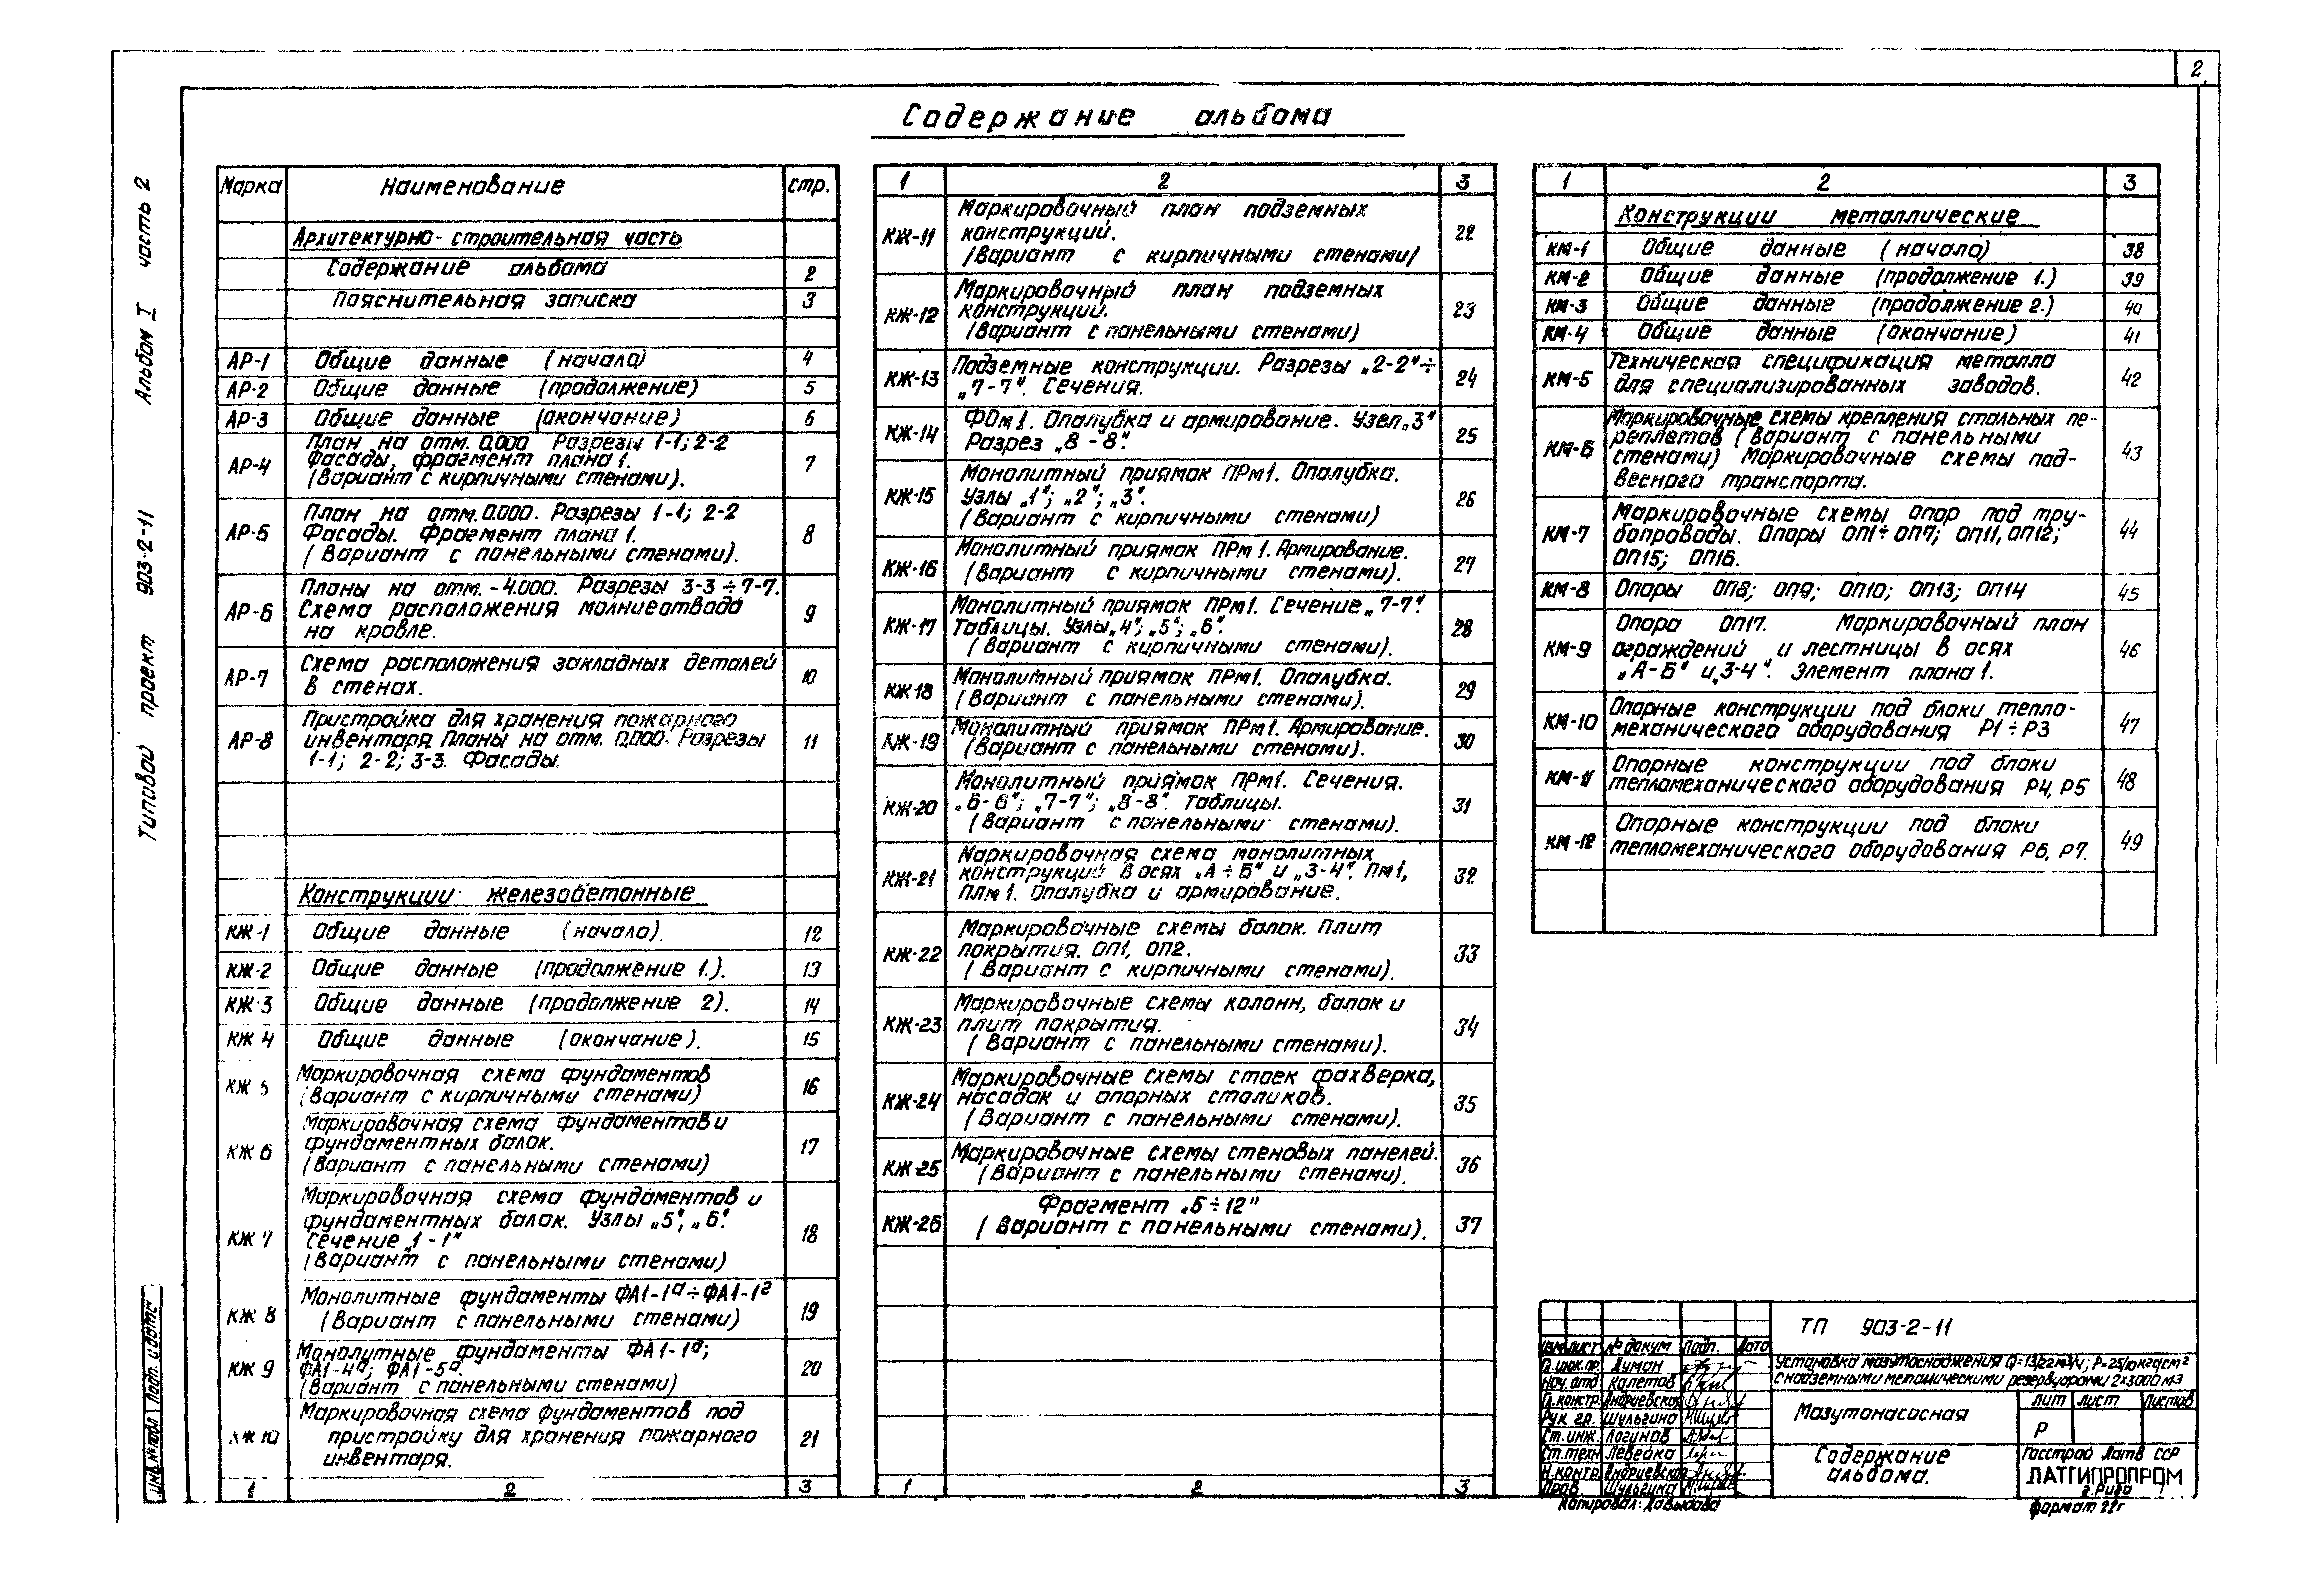 2
Содержание альбома
Типовой проект 903-2-11 Альбом I часть 2
Марка Наименование стр.
Архитектурно-строительная часть
Содержание альбома 2
Пояснительная записка 3
АР-1 Общие данные (начало) 4
АР-2 Общие данные (продолжение) 5
АР-3 Общие данные (окончание) 6
План на отм. 0.000 Разрезы 1-1; 2-2
АР-4 Фасады, фрагмент плана 1. 7
(Вариант с кирпичными стенами).
План на отм. 0.000. Разрезы 1-1; 2-2
АР-5 Фасады. Фрагмент плана 1. 8
(Вариант с панельными стенами).
Планы на отм. -4.000. Разрезы 3-3÷7-7.
АР-6 Схема расположения молниеотвода 9
на кровле.
АР-7 Схема расположения закладных деталей 10
в стенах.
Пристройка для хранения пожарного
АР-8 инвентаря. Планы на отм. 0.000. Разрезы 11
1-1; 2-2; 3-3. Фасады.
Конструкции железобетонные
КЖ-1 Общие данные (начало). 12
КЖ-2 Общие данные (продолжение 1.). 13
КЖ-3 Общие данные (продолжение 2). 14
КЖ 4 Общие данные (окончание). 15
КЖ 5 Маркировочная схема фундаментов 16
(Вариант с кирпичными стенами)
Маркировочная схема фундаментов и
КЖ 6 фундаментных балок. 17
(Вариант с панельными стенами)
Маркировочная схема фундаментов и
фундаментных балок. Узлы „5“, „6“.
КЖ 7 Сечение „1-1“ 18
(Вариант с панельными стенами)
КЖ 8 Монолитные фундаменты ФА1-1а÷ФА1-1г 19
(Вариант с панельными стенами)
Монолитные фундаменты ФА1-1д;
КЖ 9 ФА1-4а; ФА1-5а. 20
(Вариант с панельными стенами)
Маркировочная схема фундаментов под
КЖ 10 пристройку для хранения пожарного 21
инвентаря.
1 2 3
1 2 3
Маркировочный план подземных
КЖ-11 конструкций. 22
/Вариант с кирпичными стенами/
Маркировочный план подземных
КЖ-12 конструкций. 23
(Вариант с панельными стенами)
КЖ-13 Подземные конструкции. Разрезы „2-2“÷ 24
„7-7“. Сечения.
КЖ-14 ФОм1. Опалубка и армирование. Узел „3“ 25
Разрез „8-8“.
Монолитный приямок ПРм1. Опалубка.
КЖ-15 Узлы „1“; „2“; „3“. 26
(Вариант с кирпичными стенами)
КЖ-16 Монолитный приямок ПРм1. Армирование. 27
(Вариант с кирпичными стенами).
Монолитный приямок ПРм1. Сечение „7-7“.
КЖ-17 Таблицы. Узлы „4“; „5“; „6“. 28
(Вариант с кирпичными стенами).
КЖ 18 Монолитный приямок ПРм1. Опалубка. 29
(Вариант с панельными стенами).
КЖ-19 Монолитный приямок ПРм1. Армирование. 30
(Вариант с панельными стенами).
Монолитный приямок ПРм1. Сечения.
КЖ-20 „6-6“; „7-7“; „8-8“. Таблицы. 31
(Вариант с панельными стенами).
Маркировочная схема монолитных
КЖ-21 конструкций в осях „А÷Б“ и „3-4“. Пм1, 32
ПЛм1. Опалубка и армирование.
Маркировочные схемы балок. Плит
КЖ-22 покрытия. ОП1, ОП2. 33
(Вариант с кирпичными стенами).
Маркировочные схемы колонн, балок и
КЖ-23 плит покрытия. 34
(Вариант с панельными стенами).
Маркировочные схемы стоек фахверка,
КЖ-24 насадок и опорных столиков. 35
(Вариант с панельными стенами).
КЖ-25 Маркировочные схемы стеновых панелей. 36
(Вариант с панельными стенами).
КЖ-26 Фрагмент „5÷12“ 37
(Вариант с панельными стенами).
1 2 3
1 2 3
Конструкции металлические
КМ-1 Общие данные (начало) 38
КМ-2 Общие данные (продолжение 1.) 39
КМ-3 Общие данные (продолжение 2.) 40
КМ-4 Общие данные (окончание) 41
КМ-5 Техническая спецификация металла 42
для специализированных заводов.
Маркировочные схемы крепления стальных пе-
КМ-6 реплетов (вариант с панельными 43
стенами) Маркировочные схемы под-
весного транспорта.
Маркировочные схемы опор под тру-
КМ-7 бопроводы. Опоры ОП1÷ОП7; ОП11, ОП12; 44
ОП15; ОП16.
КМ-8 Опоры ОП8; ОП9; ОП10; ОП13; ОП14 45
Опора ОП17. Маркировочный план
КМ-9 ограждений и лестницы в осях 46
„А-Б“ и „3-4“. Элемент плана 1.
КМ-10 Опорные конструкции под блоки тепло- 47
механического оборудования Р1÷Р3
КМ-11 Опорные конструкции под блоки 48
тепломеханического оборудования Р4, Р5
КМ-12 Опорные конструкции под блоки 49
тепломеханического оборудования Р6, Р7.
ТП 903-2-11
Изм лист № докум Подп. Дата
Гл. инж. пр. Думан
Нач. отд Калетов
Гл. констр. Андриевская
Рук. гр. Шульгина
Ст. инж. Логинов
Ст. техн Левейка
Н. контр. Андриевская
Пров. Шульгина
Установка мазутоснабжения Q=13/22м3/ч; P=25/10кгс/см2
с надземными металлическими резервуарами 2х3000 м3
Мазутонасосная
Лит Лист Листов
Р
Содержание
альбома.
Госстрой Латв ССР
ЛАТГИПРОПРОМ
г. Рига
Копировал: Давыдова
формат 22г
Инв. № подл Подп. и дата